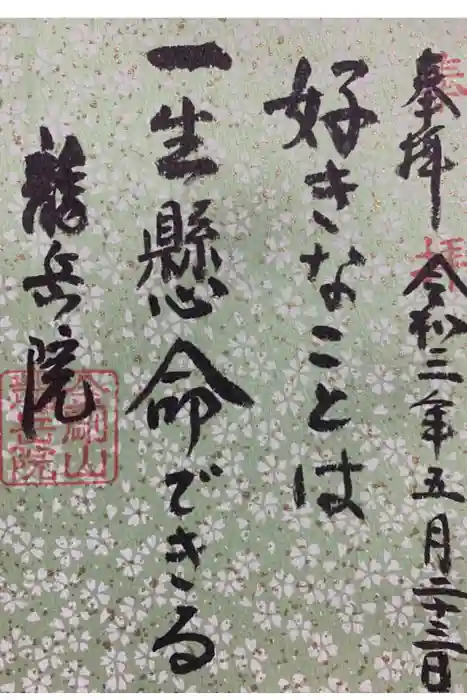 奉拝 令和三年五月二十三日
好きなことは
一生懸命できる
龍岳院